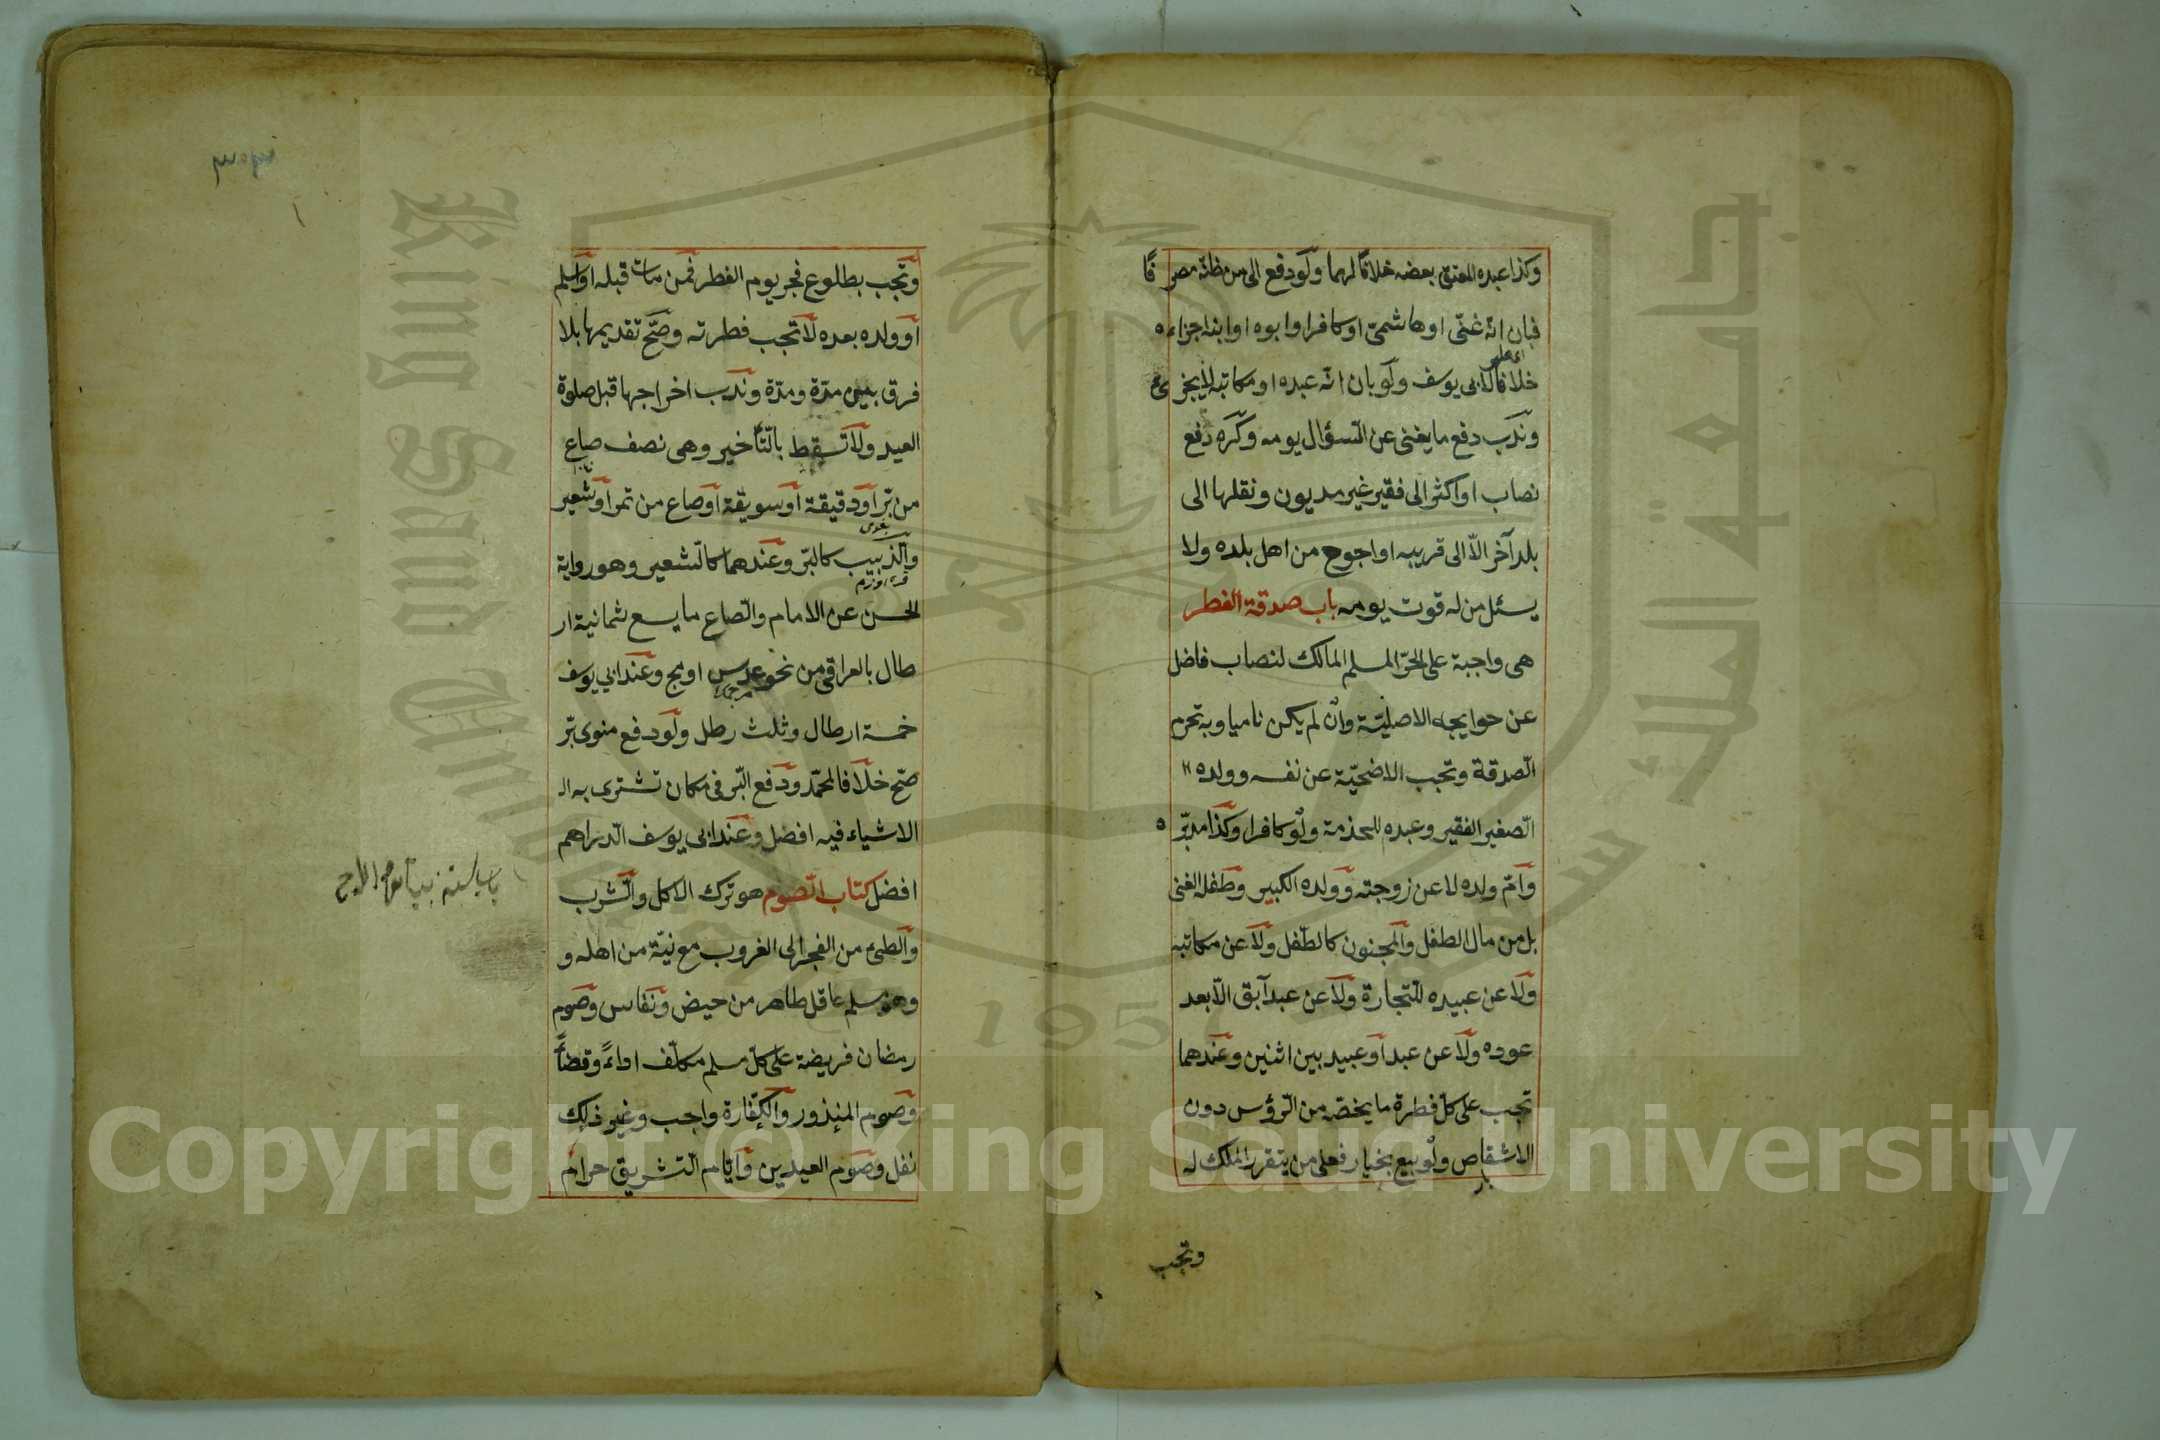 وكذا عبده المعتق بعضه خلافا لهما ولو دفع الى من ظنه مصرفا
فبان انه غنى او هاشمى او كافر او ابوه او ابنه اجزاءه
خلافا لابى يوسف ولو بان انه عبده او مكاتبه لا يجزئ
وندب دفع ما يغنى عن السؤال يومه وكره دفع
نصاب او اكثر الى فقير غير مديون ونقلها الى
بلد آخر الا الى قريبه او احوج من اهل بلده ولا
يسئل من له قوت يومه باب صدقة الفطر
هى واجبة على الحر المسلم المالك لنصاب فاضل
عن حوايجه الاصلية وان لم يكن ناميا وبه تحرم
الصدقة وتجب الاضحية عن نفسه وولده
الصغير الفقير وعبده للخدمة ولو كافرا وكذا مدبره
وام ولده لا عن زوجته وولده الكبير وطفله الغنى
بل من مال الطفل والمجنون كالطفل ولا عن مكاتبه
ولا عن عبيده للتجارة ولا عن عبد آبق الا بعد
عوده ولا عن عبد او عبيد بين اثنين وعندهما
تجب على كل فطرة ما يخصه من الرؤس دون
الاشقاص ولو بيع بخيار فعلى من يتقرر الملك له
وتجب
وتجب بطلوع فجر يوم الفطر فمن مات قبله او اسلم
او ولد بعده لا تجب فطرته وصح تقديمها بلا
فرق بين مدة ومدة وندب اخراجها قبل صلوة
العيد ولا تسقط بالتأخير وهى نصف صاع
من بر او دقيقة او سويقة او صاع من تمر او شعير
والزبيب كالبر وعندهما كالشعير وهو رواية
الحسن عن الامام والصاع ما يسع ثمانية ار
طال بالعراقى من نحو عدس او مج وعند ابى يوسف
خمسة ارطال وثلث رطل ولو دفع منوى بر
صح خلافا لمحمد ودفع البر فى مكان تشترى به ال
الاشياء فيه افضل وعند ابى يوسف الدراهم
افضل كتاب الصوم هو ترك الاكل والشرب
والوطئ من الفجر الى الغروب مع نية من اهله و
وهو مسلم عاقل طاهر من حيض ونفاس وصوم
رمضان فريضة على كل مسلم مكلف اداء وقضاء
وصوم المنذور والكفارة واجب وغير ذلك
نفل وصوم العيدين وايام التشريق حرام
King Saud University
جامعة الملك سعود
195
Copyright © King Saud University